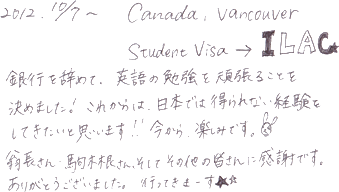 2012. 10/7 ~ Canada, Vancouver
Student Visa → ILAC★
銀行を辞めて、英語の勉強を頑張ることを
決めました! これからは、日本では得られない経験を
してきたいと思います!! 今から、楽しみです。
翁長さん、駒木根さん、そしてその他の皆さんに感謝です。
ありがとうございました。行ってきまーす★☆